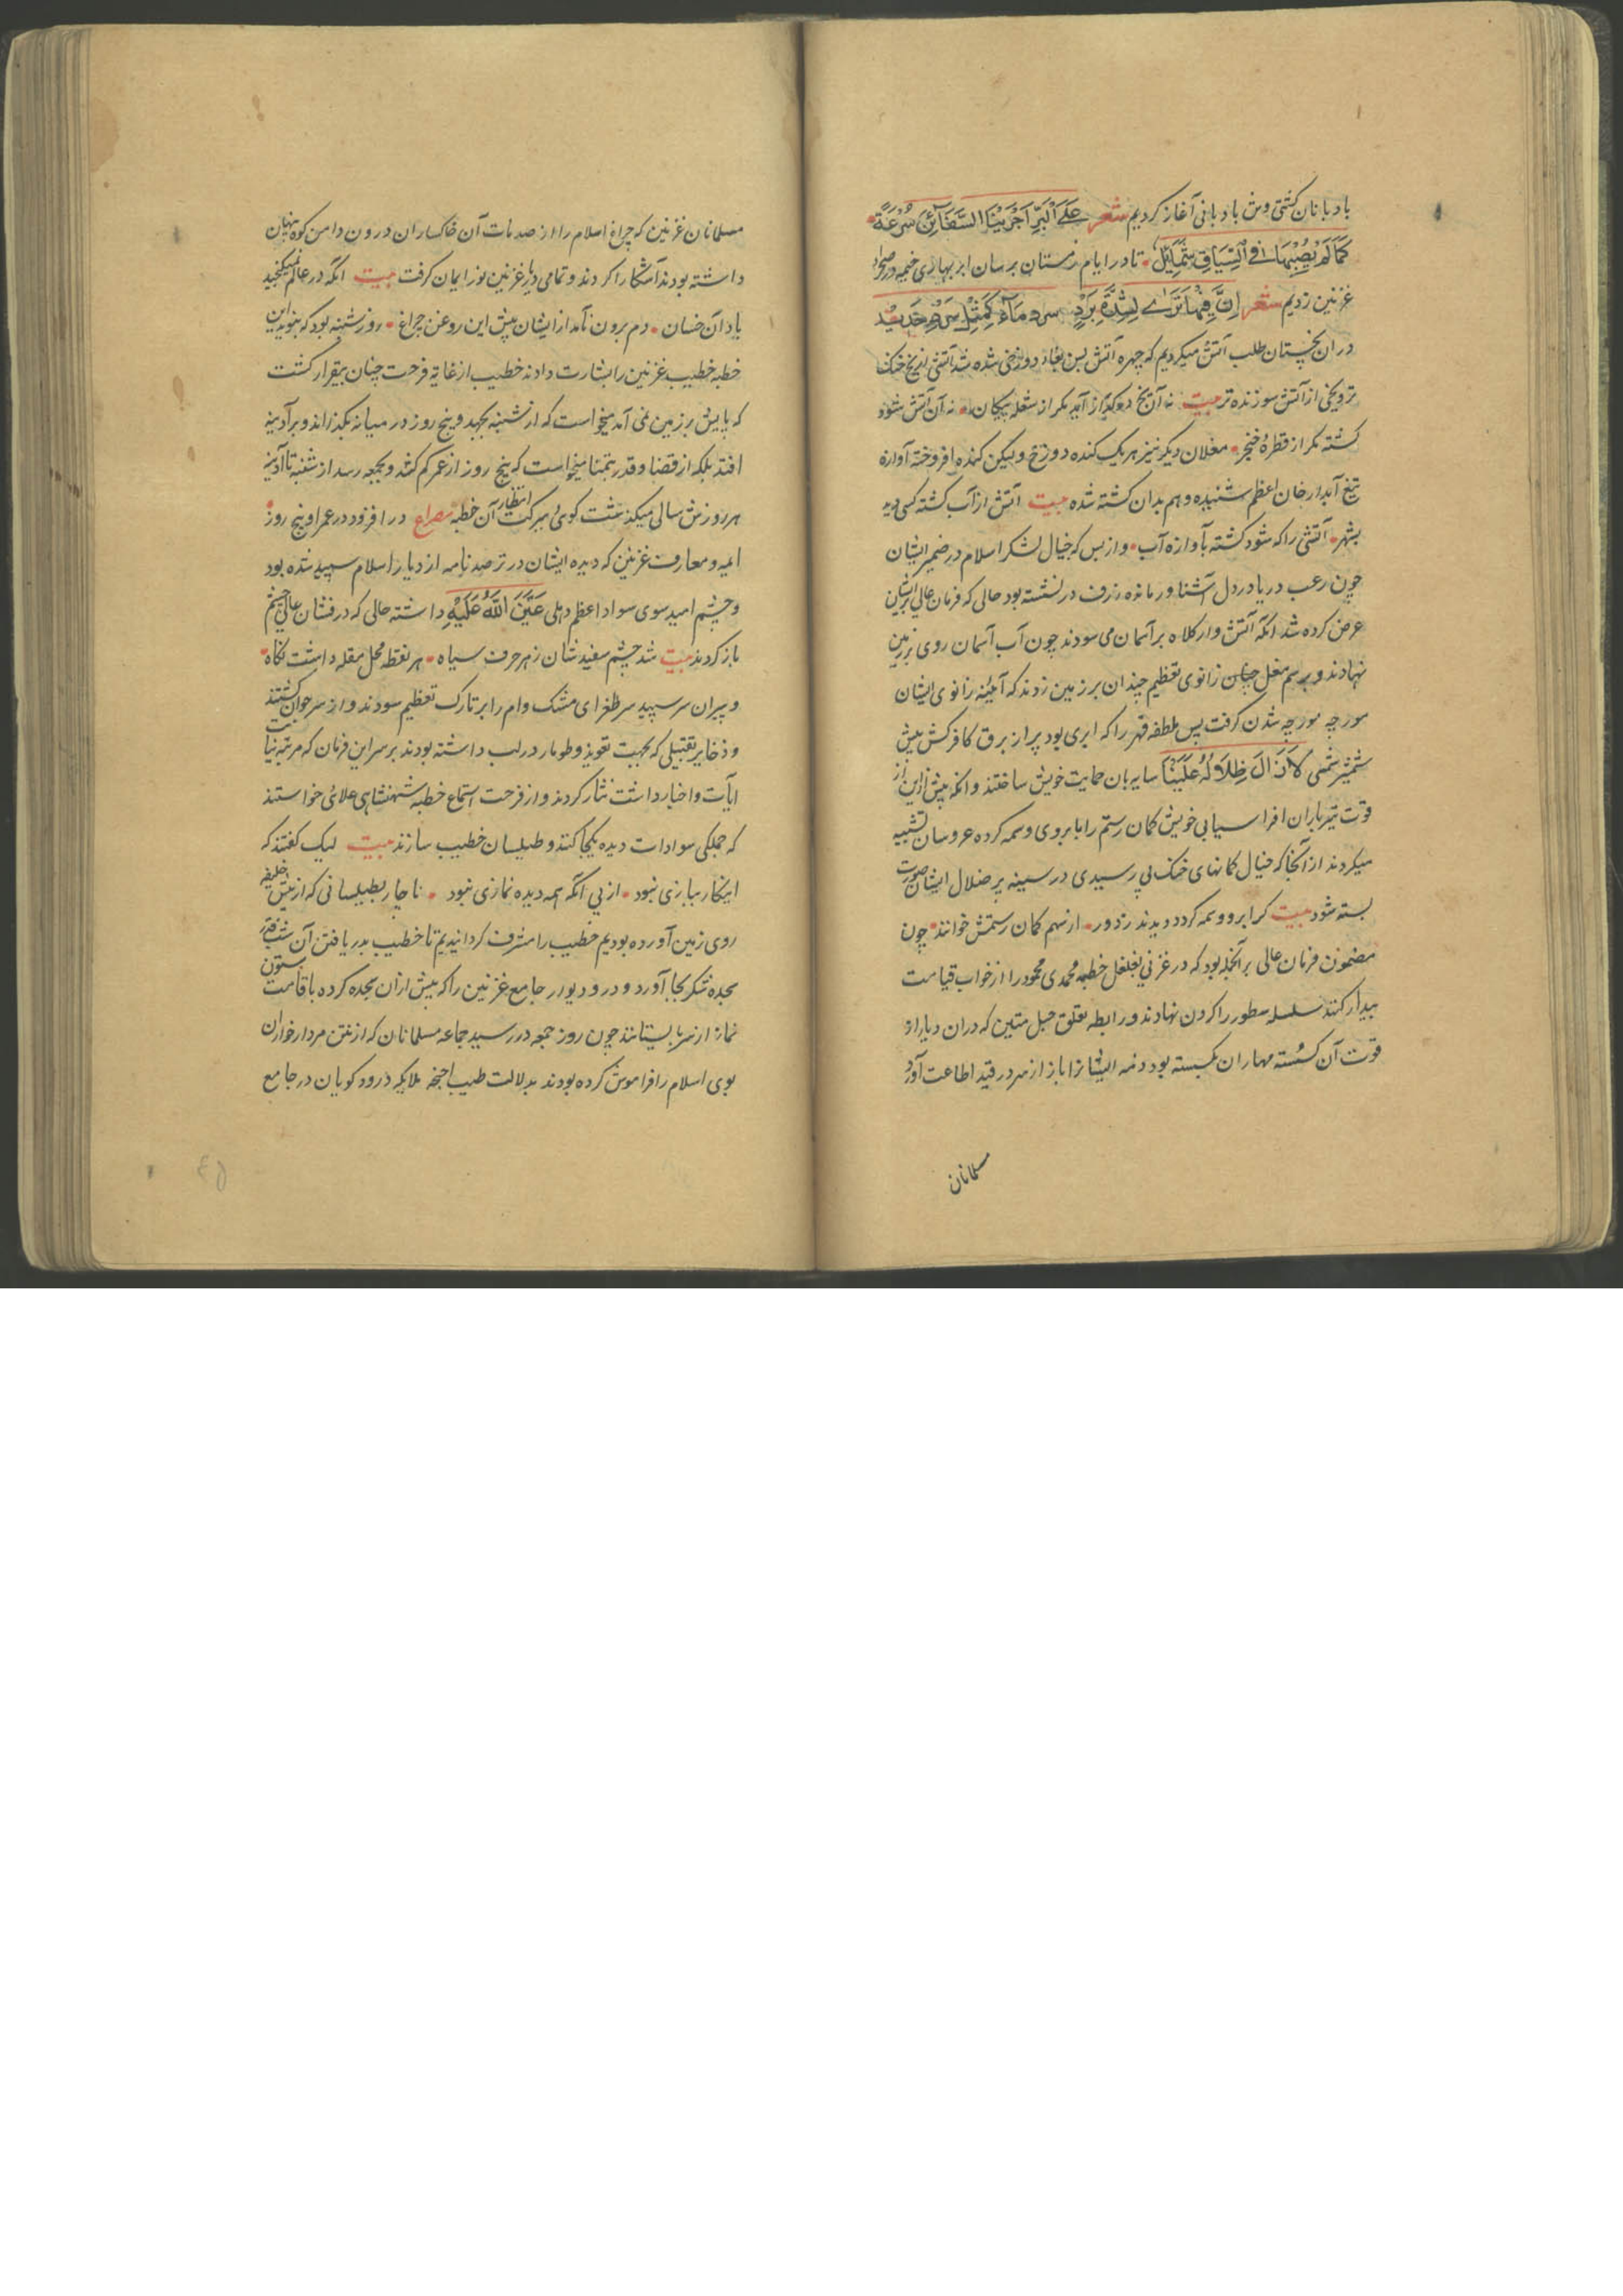 بادبانان کشتی وش بادبانی آغاز کردیم شعر عَلَی الْبَرِّ اَجْرَیْنَا السَّفَائِنَ سُرْعَةً
تا در ایام زمستان برسان ابر بهاری خیمه در صحرا
غزنین زدیم شعر اِنَّ فِیْهَا
در ان یخبستان طلب آتش میکردیم که چهره آتش
تر و یخی از آتش سوزنده تر بیت نه آن یخ در گداز آید مگر از شعله پیکان • نه آن آتش شود
کشته مگر از قطرهٔ خنجر • مغلان دیگر نیز هر یک کنده دوزخ ولیکن کنده افروخته آوازه
تیغ آبدار خان اعظم شنیده و هم بدان کشته شده بیت آتش از آب کشته کسی دید
بشهر • آتشی را که شود کشته بآوازه آب • و از بس که خیال لشکر اسلام در ضمیر ایشان
چون رعب دریا در دل آشناور مانده ژرف در نشسته بود حالی که فرمان عالی بر ایشان
عرض کرده شد انکه آتش وار کلاه بر آسمان می سودند چون آب آسمان روی بر زمین
نهادند و برسم مغل چنان زانوی تعظیم چندان بر زمین زدند که آئینه زانوی ایشان
مورچه مورچه شدن گرفت پس طفطفه قهر را که ابری بود پر از برق کافر کش پیش
شمشیر شمسی لَا زَالَ ظِلَالُهُ عَلَیْنَا سایه بان حمایت خویش ساختند و انکه پیش ازین از
قوت تیر باران افراسیابی خویش کمان رستم را با بروی وسمه کرده عروسان تشبیه
میکردند از آنجا که خیال کمانهای خدنگ پی رسیدی در سینه پر ضلال ایشان صورت
بسته شود بیت گر ابرو وسمه کرد و دیدند ز دور • از سهم کمان رستمش خوانند • چون
مضمون فرمان عالی بر آنجمله بود که در غزنی بغلغل خطبه محمدی محمود را از خواب قیامت
بیدار کنند سلسله سطور را گردن نهادند و رابطه تعلق حبل متین که دران دیار از
قوت آن گسسته مهاران بگسسته بود ذمه ایشانرا باز از سر در قید اطاعت آورد
مسلمانان
مسلمانان غزنین که چراغ اسلام را از صدمات آن خاکساران درون دامن کوه پنهان
داشته بودند آشکارا کردند و تمامی دیار غزنین نور ایمان گرفت بیت انکه در عالم نمیگنجید
باد آن خسان • دم برون نامد از ایشان پیش این روغن چراغ • روز شنبه بود که بنوید این
خطبه خطیب غزنین را بشارت دادند خطیب از غایة فرحت چنان بیقرار گشت
که پایش بر زمین نمی آمد میخواست که از شنبه بجهد و پنج روز در میانه بگذراند و بر آدینه
افتد بلکه از قضا و قدر بتمنا میخواست که پنج روز از عمر کم کند و بجمعه رسد از شنبه تا آدینه
هر روزش سالی میگذشت گوئی ببرکت انتظار آن خطبه مصراع در افزود در عمر او پنج روز •
ایمه و معارف غزنین که دیده ایشان در ترصد نامه از دیار اسلام سپید شده بود
و چشم امید سوی سواد اعظم دهلی عَیْنُ اللّٰهِ عَلَیْهِ داشته حالی که درفشان عالی چشم
باز کردند بیت شد چشم سفید شان ز هر حرف سیاه • هر نقطه محل مقله داشت نگاه •
و پیران سر سپید سر طغرای مشک وام را بر تارک تعظیم سودند و از سر جوان گشتند
و ذخایر تقبیلی که بجهت تعویذ و طومار در لب داشته بودند بر سر این فرمان که مرتبه بینات
ایات و اخبار داشت نثار کردند و از فرحت استماع خطبه شهنشاهی علائی خواستند
که جملگی سوادات دیده یکجا کنند و طیلسان خطیب سازند بیت لیک گفتند که
اینکار ببازی نبود • از پی آنکه همه دیده نمازی نبود • ناچار بطیلسانی که از پیش خلیفه
روی زمین آورده بودیم خطیب را مشرف گردانیدیم تا خطیب بدریافتن آن شب قدر
سجده شکر بجا آورد و در و دیوار جامع غزنین را که پیش ازان سجده کرده باقامت ستون
نماز از سر بایستانند چون روز جمعه در رسید جماعه مسلمانان که از نتن مردار خواران
بوی اسلام را فراموش کرده بودند بدلالت طیب اجنحه ملایکه درود گویان در جامع